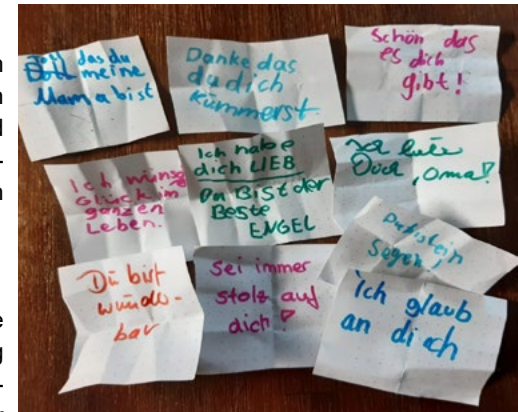 Toll das du
meine
Mama bist
Danke das
du dich
kümmerst.
Schön das
es dich
gibt!
Ich
Glück im
ganzen
Leben.
Ich habe
dich LIEB
Du BIST der
Beste
ENGEL
Ich liebe
Dich, Oma!
Du bist ein
Segen!
Du bist
wunder-
bar
Sei immer
stolz auf
dich!
Ich glaub
an dich